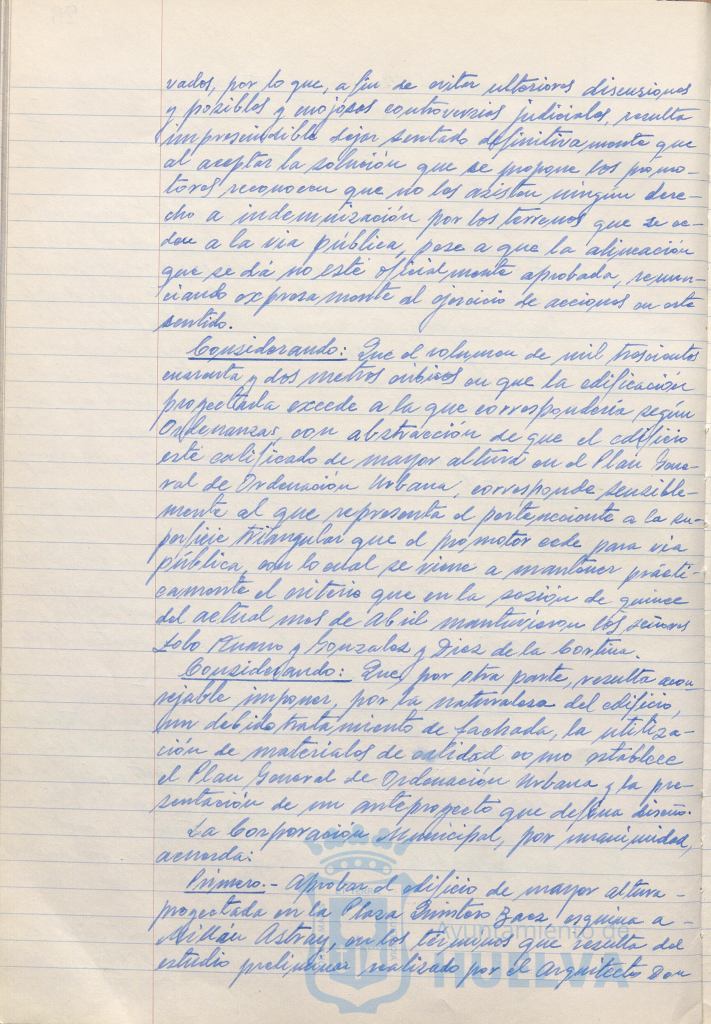 vados, por lo que, a fin de evitar ulteriores discusiones
y posibles y enojosas controversias judiciales, resulta
imprescindible dejar sentado definitivamente que
al aceptar la solución que se propone los promo-
tores reconocen que no les asisten ningún dere-
cho a indemnización por los terrenos que se ce-
den a la via pública, pese a que la alineación
que se dá no esté oficialmente aprobada, renun-
ciando expresamente al ejercicio de acciones en este
sentido.
Considerando: Que el volumen de mil trescientos
cuarenta y dos metros cúbicos en que la edificación
proyectada excede a la que correspondería según
Ordenanzas, con abstracción de que el edificio
esté calificado de mayor altura en el Plan Gene-
ral de Ordenación Urbana, corresponde sensible-
mente al que representa el perteneciente a la su-
perficie triangular que el promotor cede para via
pública, con lo cual se viene a mantener prácti-
camente el criterio que en la sesión de quince
del actual mes de Abril mantuvieron los señores
Lobo Ruano y Gonzalez y Diez de la Cortina.
Considerando: Que, por otra parte, resulta acon-
sejable imponer, por la naturaleza del edificio,
un debido tratamiento de fachada, la utiliza-
ción de materiales de calidad como establece
el Plan General de Ordenación Urbana y la pre-
sentación de un anteproyecto que defina diseño.
La Corporación Municipal, por unanimidad,
acuerda:
Primero.- Aprobar el edificio de mayor altura
proyectada en la Plaza Quintero Baez esquina a
Millán Astray, en los términos que resulta del
estudio preliminar realizado por el Arquitecto Don
Ayuntamiento de
HUELVA